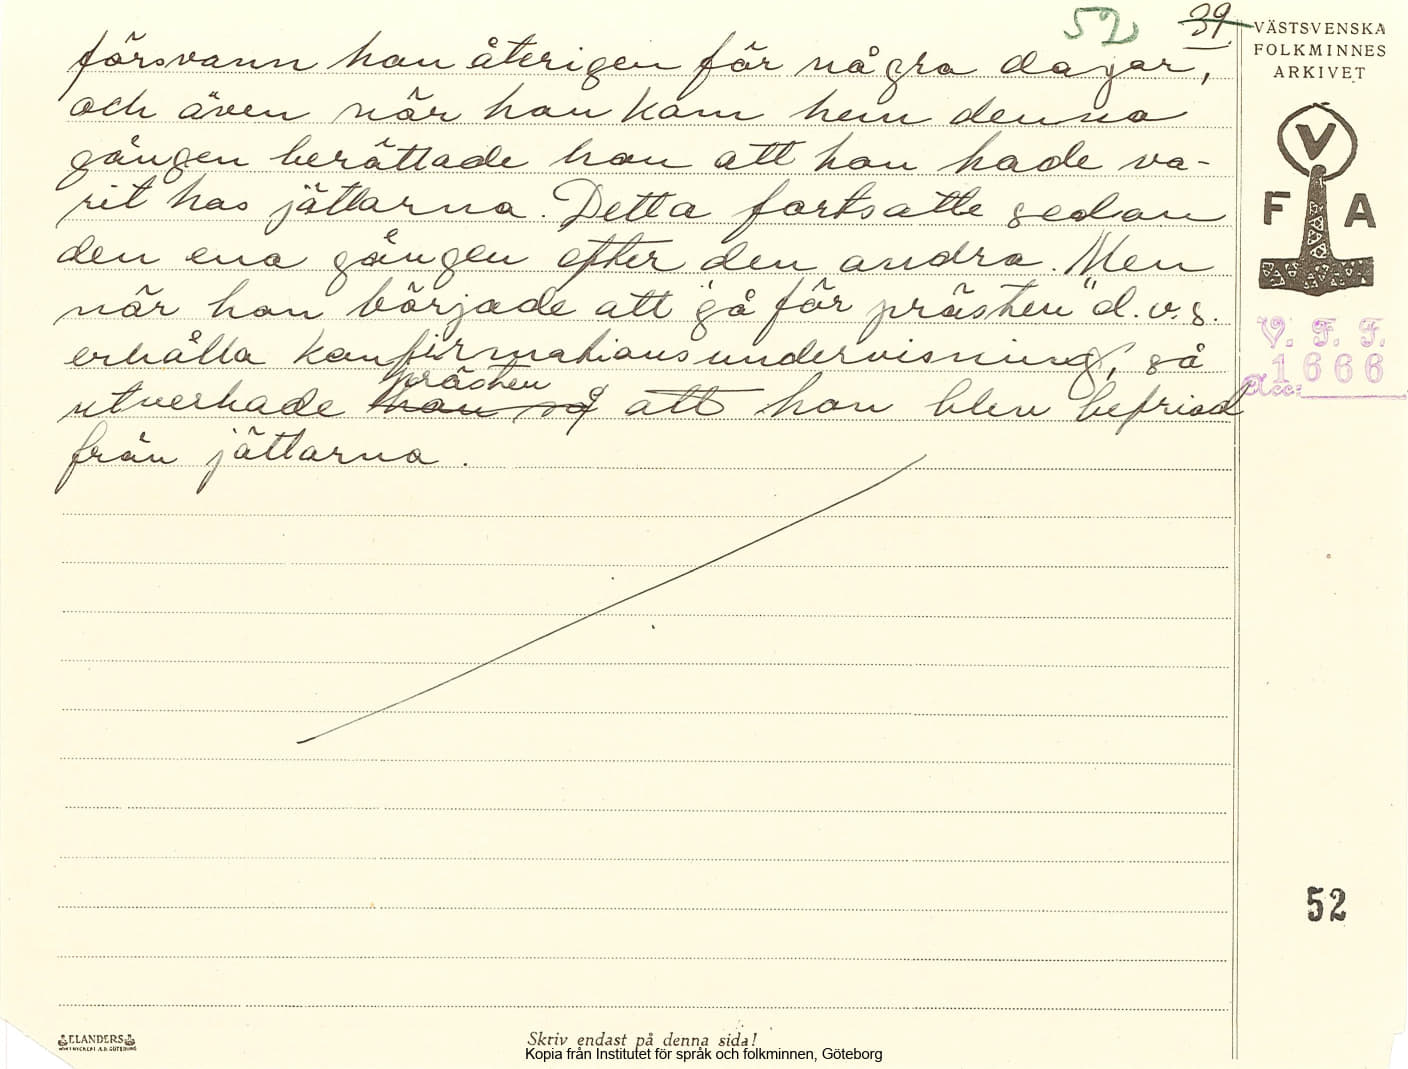 52 39
försvann han återigen för några dagar,
och även när han kom hem denna
gången berättade han att han hade va-
rit hos jättarna. Detta fortsatte sedan
den ena gången efter den andra. Men
när han började att "gå för prästen" d.v.s.
erhålla konfirmationsundervisning, så
prästen
utverkade han så att han blev befriad
från jättarna.
VÄSTSVENSKA
FOLKMINNES
ARKIVET
V
F A
V. F. F.
Acc: 1666
52
ELANDERS
Skriv endast på denna sida!
Kopia från Institutet för språk och folkminnen, Göteborg